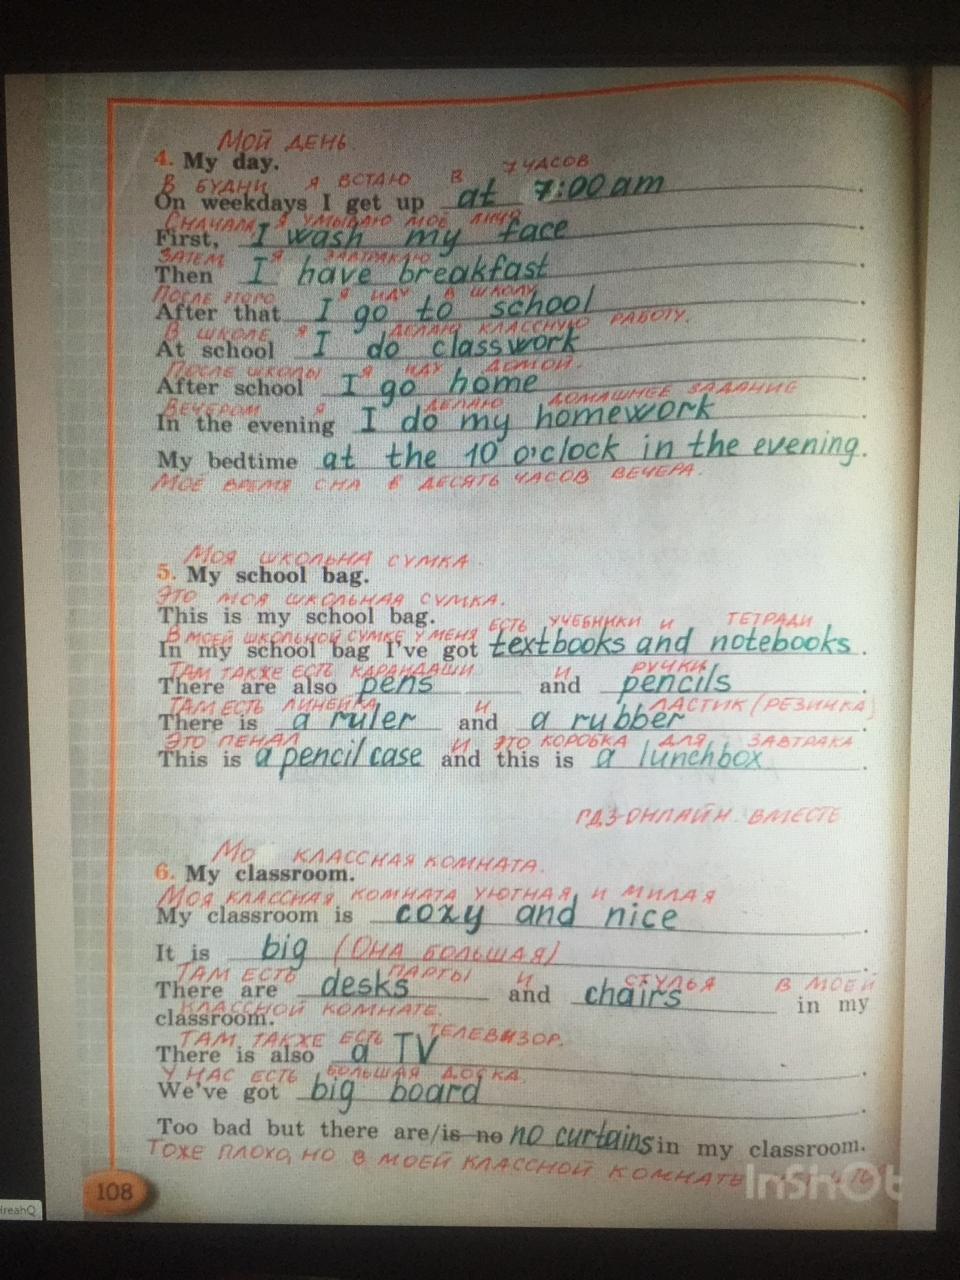 МОЙ ДЕНЬ.
4. My day.
В БУДНИ Я ВСТАЮ В 7 ЧАСОВ
On weekdays I get up at 7:00 am.
СНАЧАЛА, Я УМЫВАЮ МОЁ ЛИЦО
First, I wash my face.
ЗАТЕМ Я ЗАВТРАКАЮ
Then I have breakfast.
ПОСЛЕ ЭТОГО Я ИДУ В ШКОЛУ
After that I go to school.
В ШКОЛЕ Я ДЕЛАЮ КЛАССНУЮ РАБОТУ.
At school I do classwork.
ПОСЛЕ ШКОЛЫ Я ИДУ ДОМОЙ.
After school I go home.
ВЕЧЕРОМ Я ДЕЛАЮ ДОМАШНЕЕ ЗАДАНИЕ
In the evening I do my homework.
My bedtime at the 10 o'clock in the evening.
МОЁ ВРЕМЯ СНА В ДЕСЯТЬ ЧАСОВ ВЕЧЕРА.
МОЯ ШКОЛЬНА СУМКА.
5. My school bag.
ЭТО МОЯ ШКОЛЬНАЯ СУМКА.
This is my school bag.
В МОЕЙ ШКОЛЬНОЙ СУМКЕ У МЕНЯ ЕСТЬ УЧЕБНИКИ И ТЕТРАДИ
In my school bag I've got textbooks and notebooks.
ТАМ ТАКЖЕ ЕСТЬ КАРАНДАШИ И РУЧКИ
There are also pens and pencils.
ТАМ ЕСТЬ ЛИНЕЙКА И ЛАСТИК (РЕЗИНКА)
There is a ruler and a rubber.
ЭТО ПЕНАЛ И ЭТО КОРОБКА ДЛЯ ЗАВТРАКА
This is a pencil case and this is a lunchbox.
ГДЗ-ОНЛАЙН. ВМЕСТЕ
МО КЛАССНАЯ КОМНАТА.
6. My classroom.
МОЯ КЛАССНАЯ КОМНАТА УЮТНАЯ И МИЛАЯ
My classroom is coxy and nice.
It is big (ОНА БОЛЬШАЯ).
ТАМ ЕСТЬ ПАРТЫ И СТУЛЬЯ В МОЕЙ
There are desks and chairs in my
КЛАССНОЙ КОМНАТЕ.
classroom.
ТАМ ТАКЖЕ ЕСТЬ ТЕЛЕВИЗОР.
There is also a TV.
У НАС ЕСТЬ БОЛЬШАЯ ДОСКА.
We've got big board.
Too bad but there are/is no no curtains in my classroom.
ТОЖЕ ПЛОХО, НО В МОЕЙ КЛАССНОЙ КОМНАТЕ
InShOt
108
ireahQ